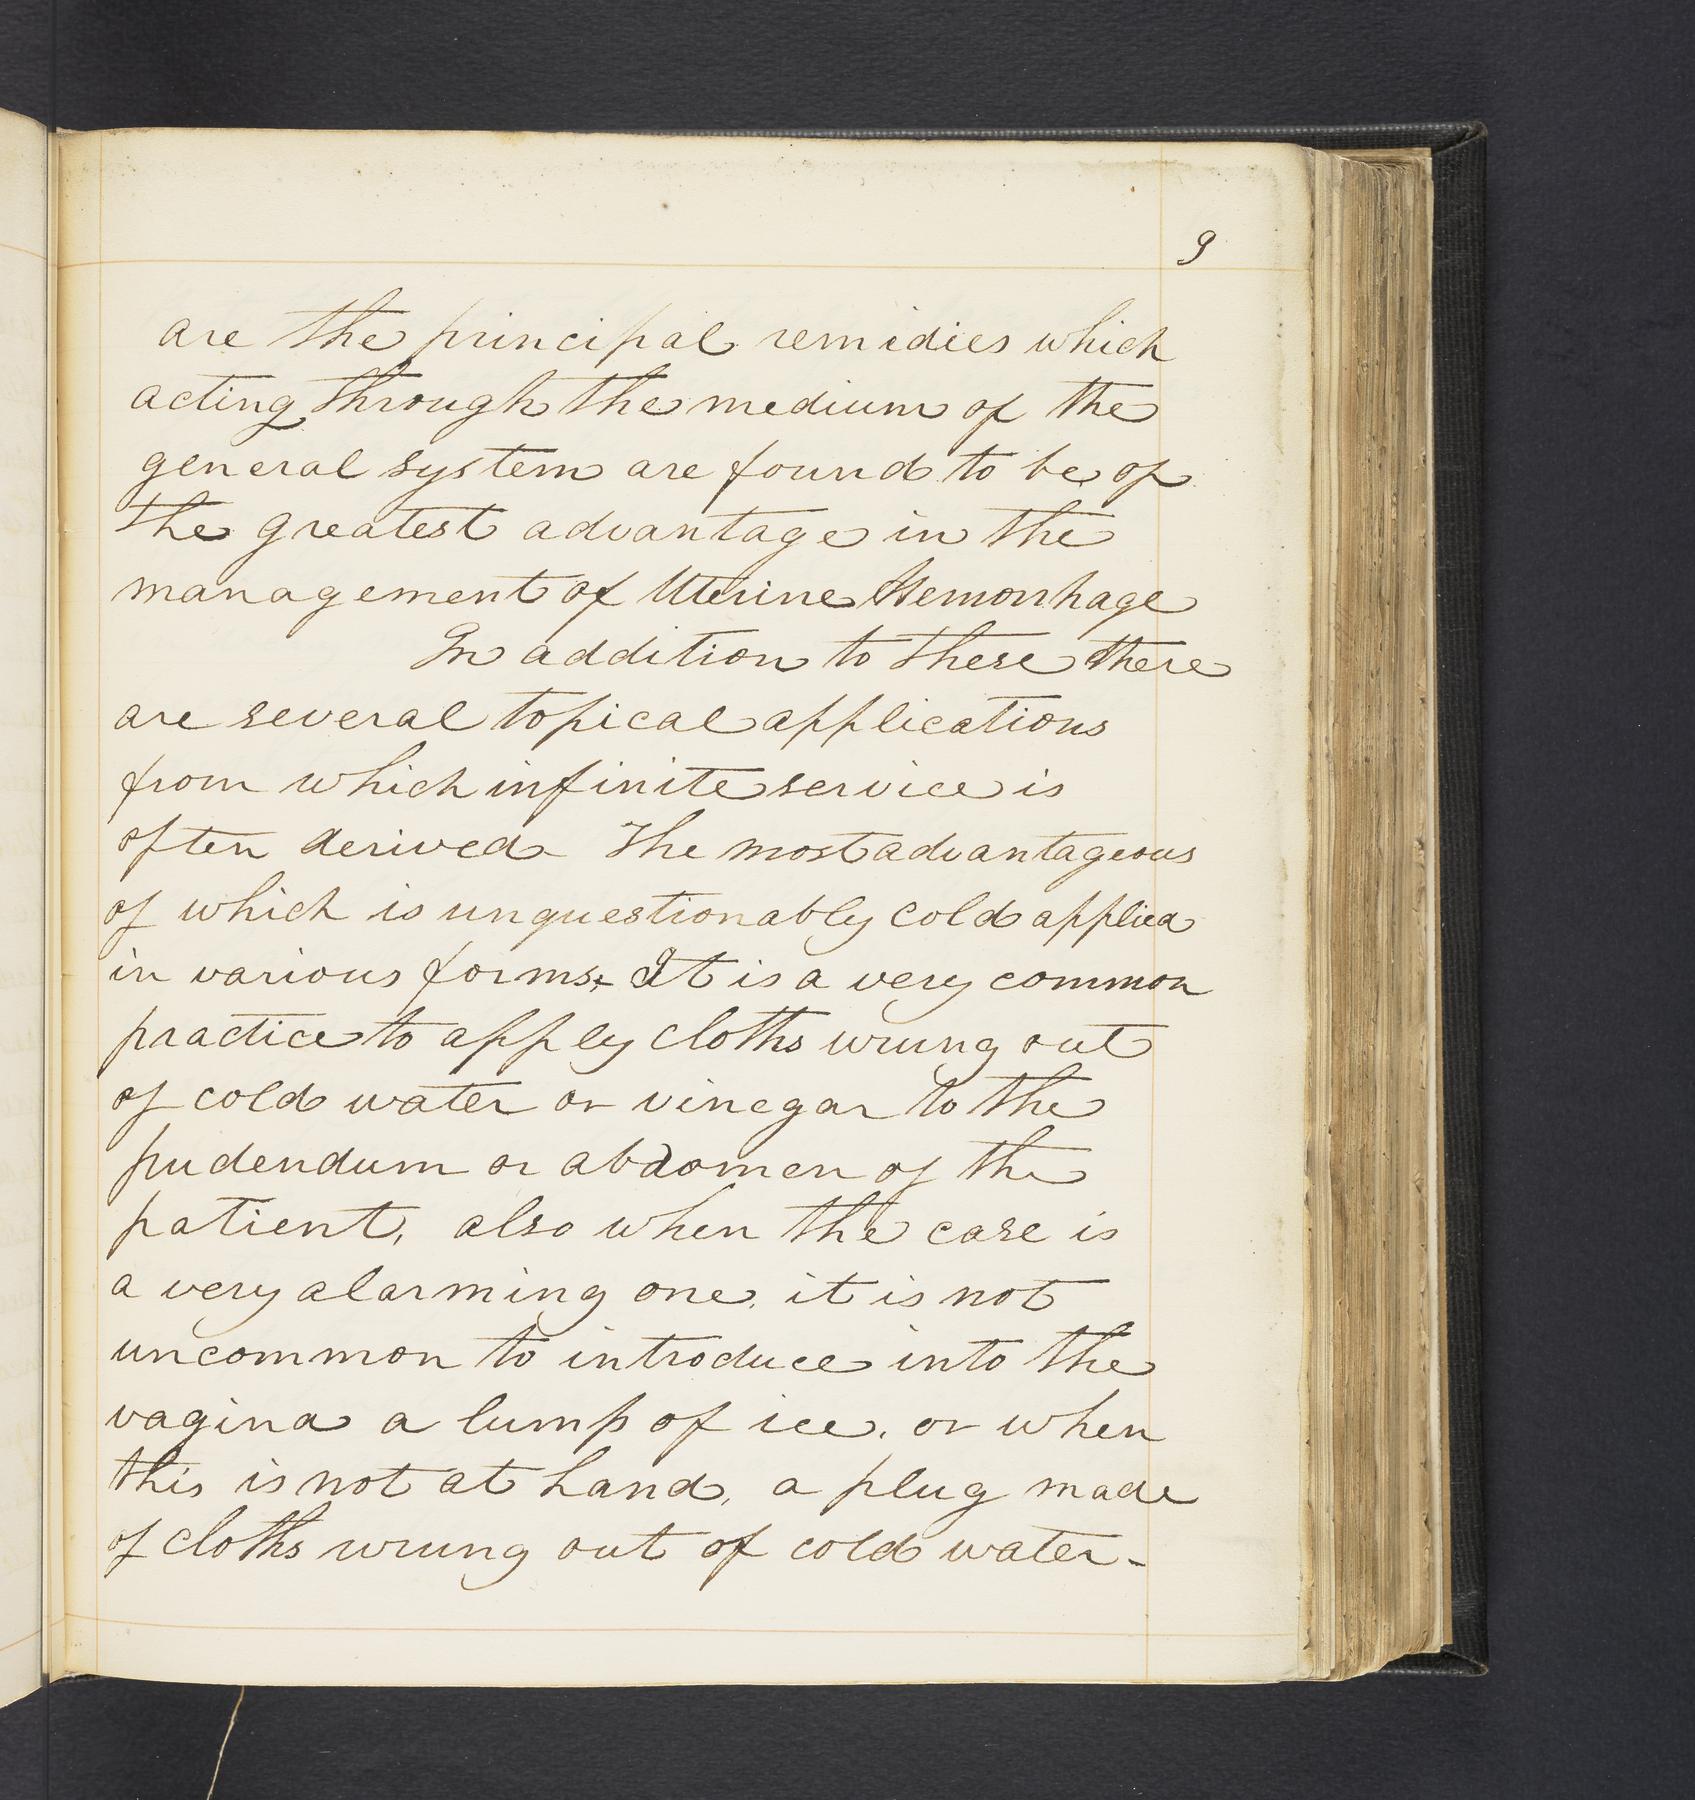 9
are the principal remidies which
acting through the medium of the
general system are found to be of
the greatest advantage in the
management of Uterine Hemorrhage
In addition to these there
are several topical applications
from which infinite service is
often derived - The most advantageous
of which is unquestionably cold applied
in various forms. It is a very common
practice to apply cloths wrung out
of cold water or vinegar to the
pudendum or abdomen of the
patient, also when the case is
a very alarming one, it is not
uncommon to introduce into the
vagina a lump of ice, or when
this is not at hand, a plug made
of cloths wrung out of cold water -